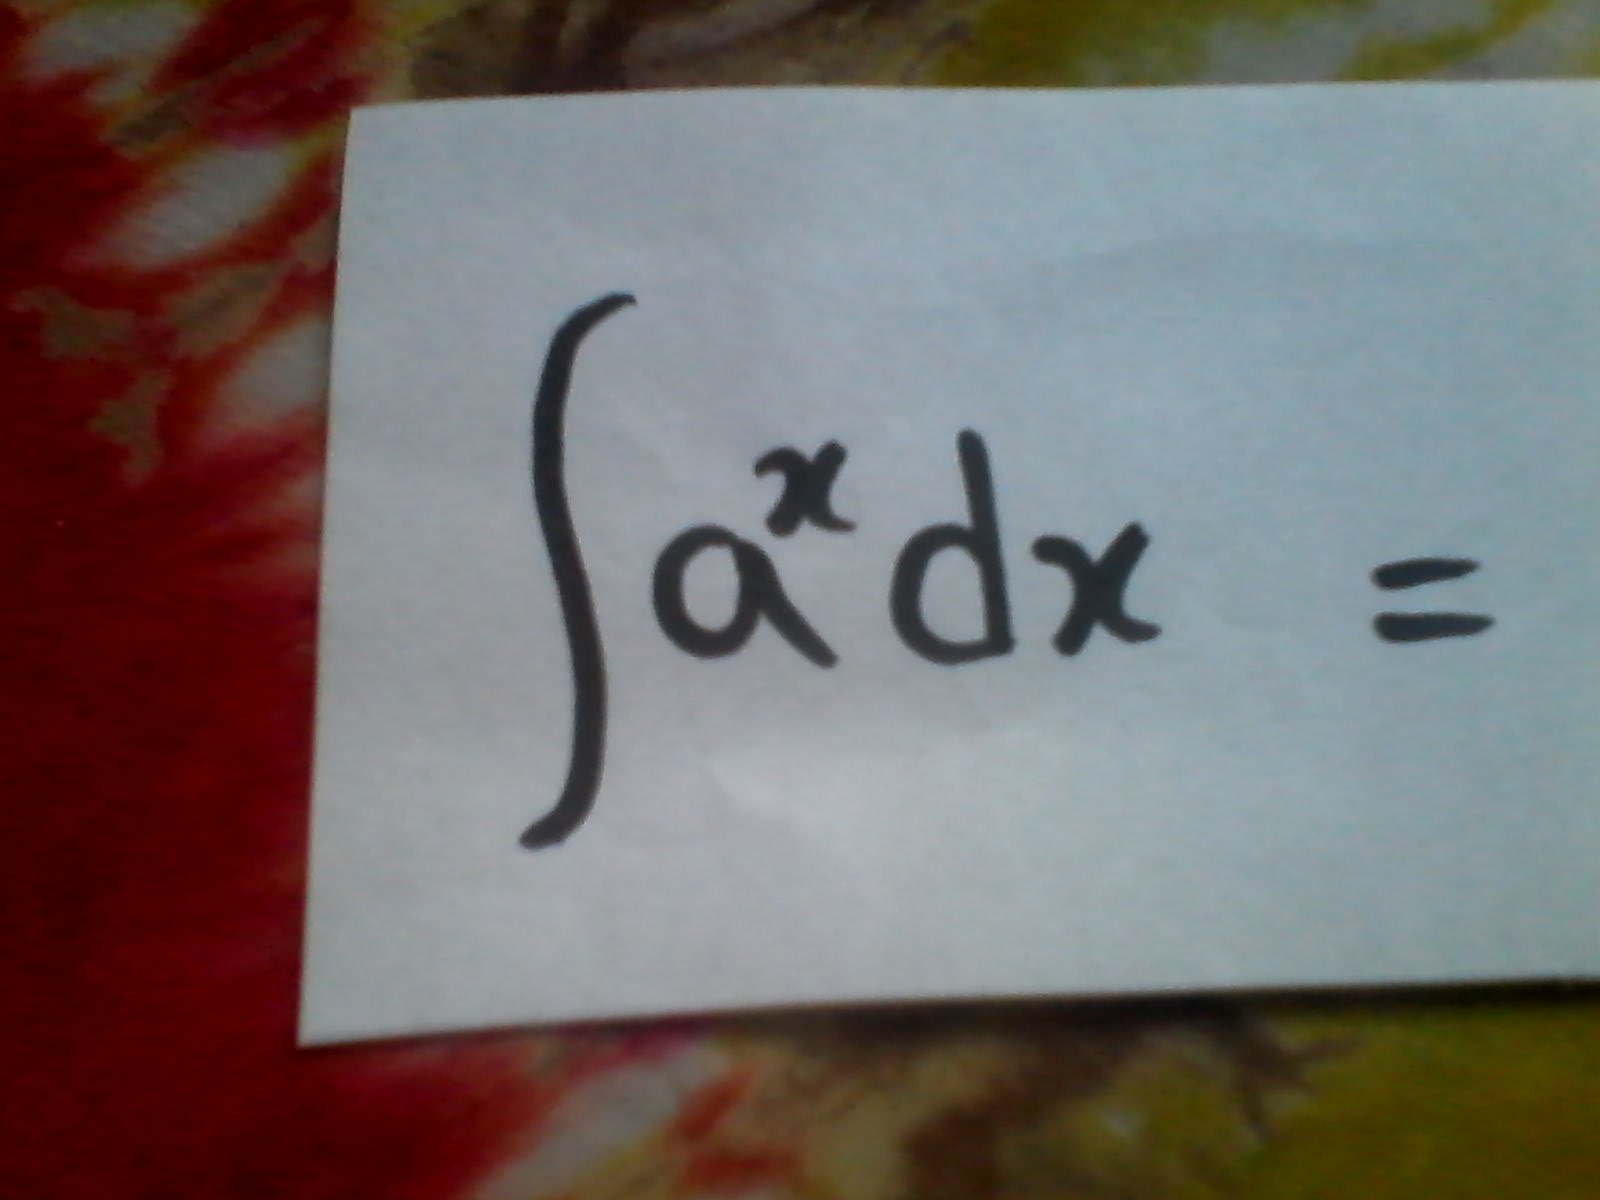 ∫aˣdx =